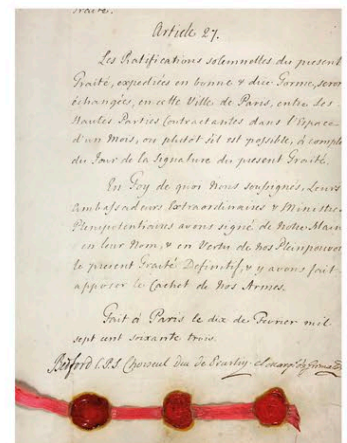 Traité.
Article 27.
Les Ratifications solemnelles du present
Traité, expediées en bonne & due Forme, seron
échangées, en cette Ville de Paris, entre les
Hautes Parties Contractantes dans l'Espace
d'un Mois, ou plutôt s'il est possible, à compte
du Jour de la Signature du present Traité.
En Foy de quoi Nous soussignés, Leurs
Ambassadeurs Extraordinaires & Ministre
Plenipotentiaires avons signé de Notre Main
en leur Nom, & en Vertu de nos Pleinpouvoi
le present Traité Definitif, & y avons fait
apposer le Cachet de nos Armes.
Fait à Paris le dix de Fevrier mil
sept cent soixante trois.
Bedford C.P.S. Choiseul Duc de Praslin. el Marqs de Grimaldi